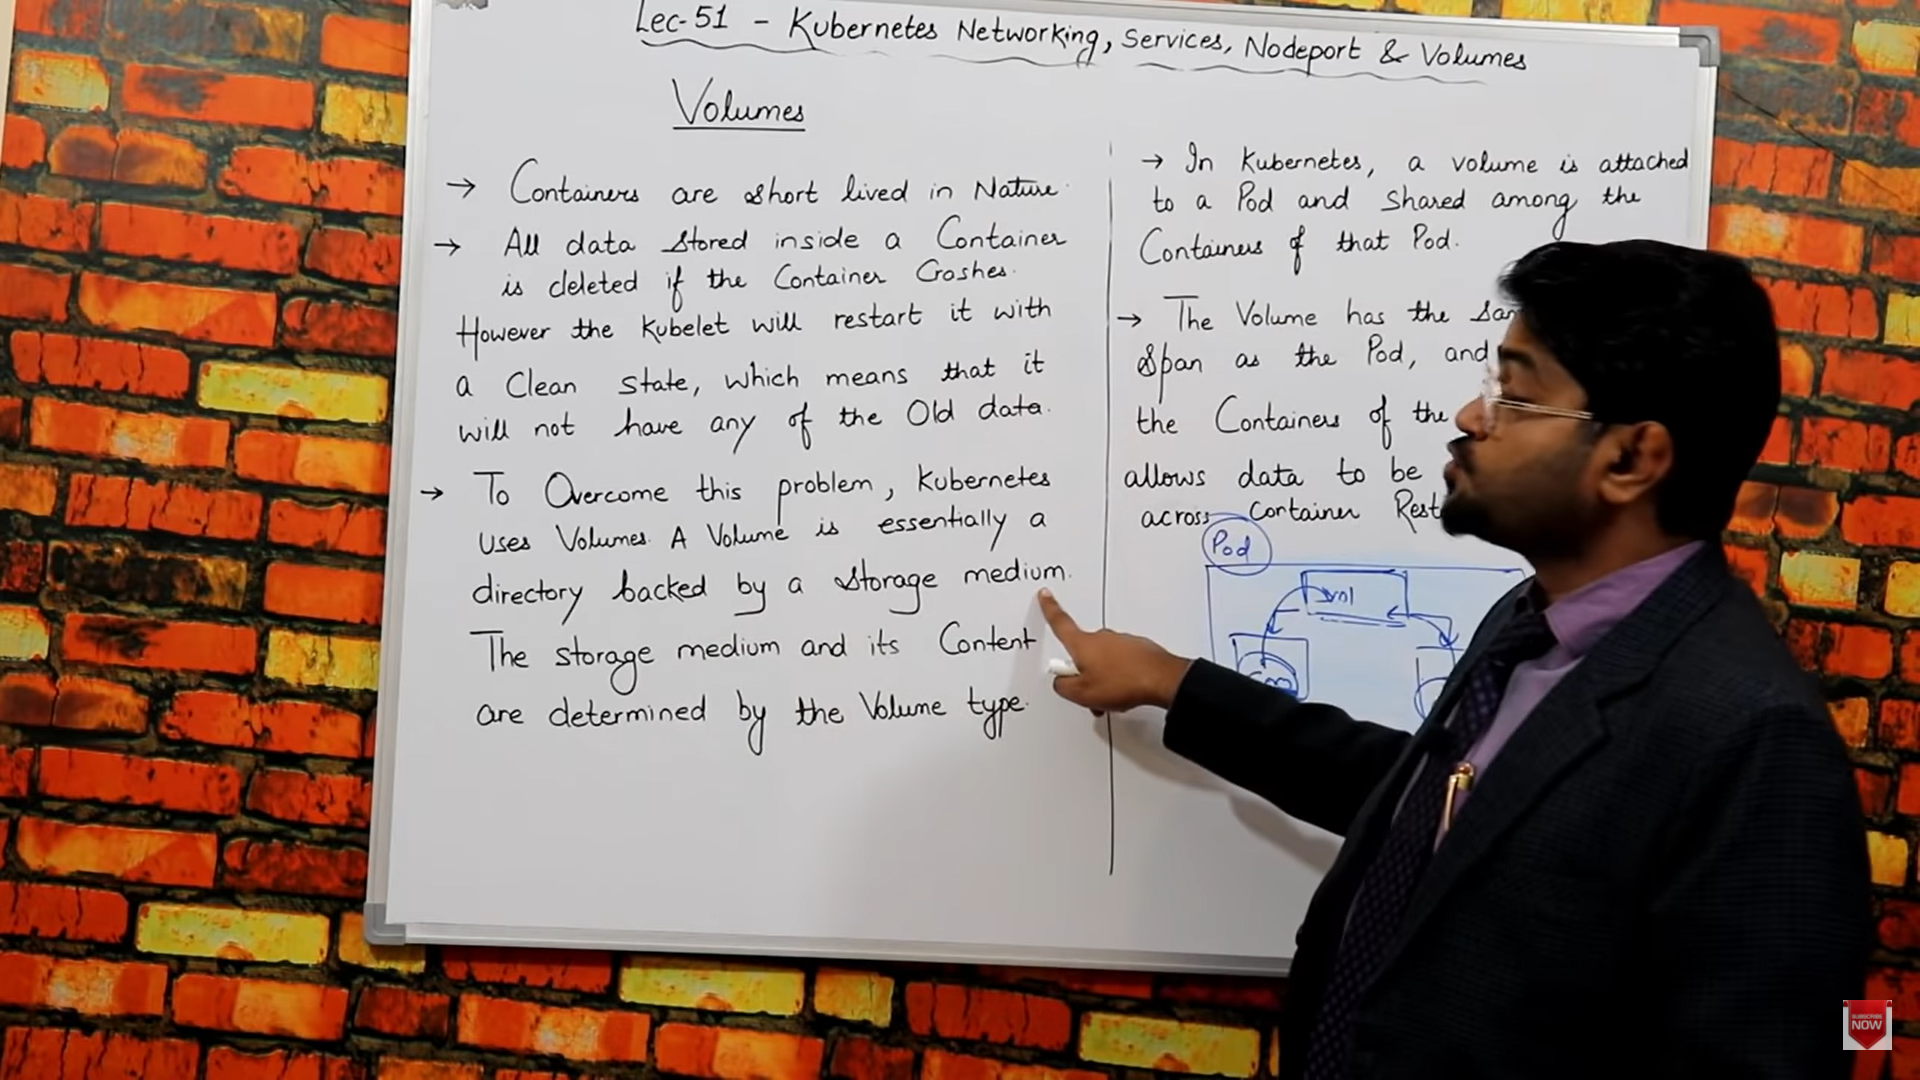 Lec-51 - Kubernetes Networking, Services, Nodeport & Volumes
Volumes
→ Containers are short lived in Nature.
→ All data stored inside a Container
is deleted if the Container Crashes.
However the Kubelet will restart it with
a Clean state, which means that it
will not have any of the Old data.
→ To Overcome this problem, Kubernetes
uses Volumes. A Volume is essentially a
directory backed by a storage medium.
The storage medium and its Content
are determined by the Volume type.
→ In Kubernetes, a volume is attached
to a Pod and shared among the
Containers of that Pod.
→ The Volume has the
Span as the Pod, and
the Containers of the
allows data to be
across Container
Pod
Vol
SUBSCRIBE
NOW